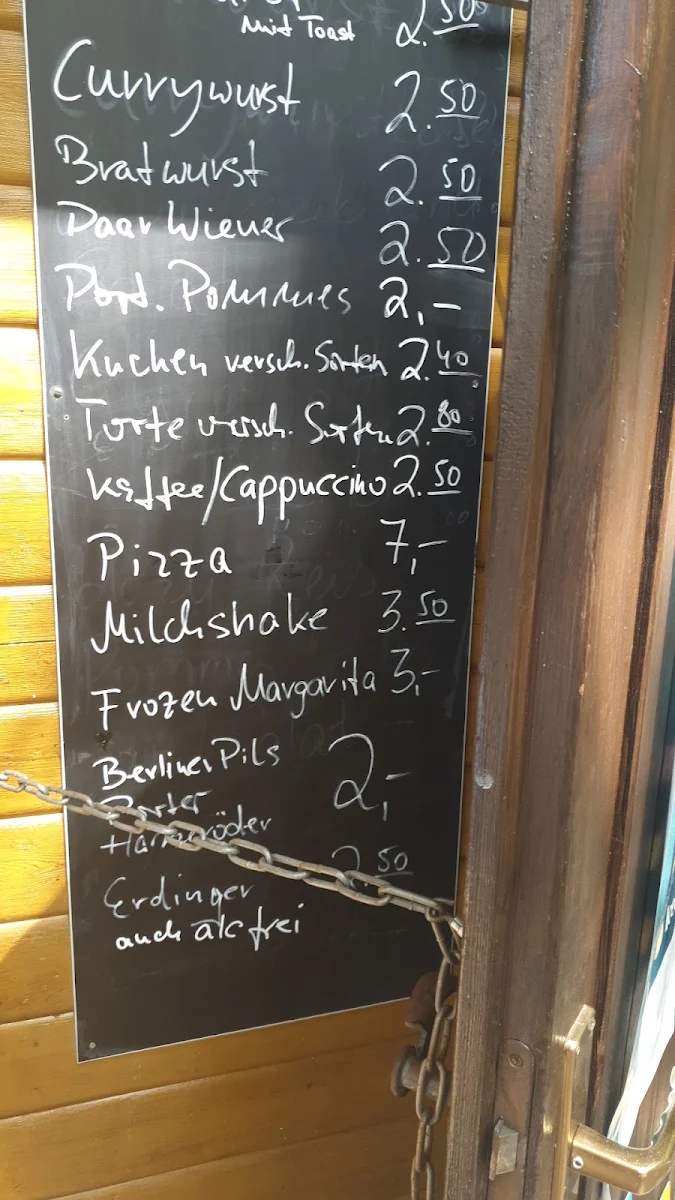 mit Toast 2.50
Currywurst 2.50
Bratwurst 2.50
Paar Wiener 2.50
Port. Pommes 2,-
Kuchen versch. Sorten 2.40
Torte versch. Sorten 2.80
Kaffee/Cappuccino 2.50
Pizza 7,-
Milchshake 3.50
Frozen Margarita 3,-
Berliner Pils 2,-
Porter
Hasseröder
Erdinger 2.50
auch alcfrei